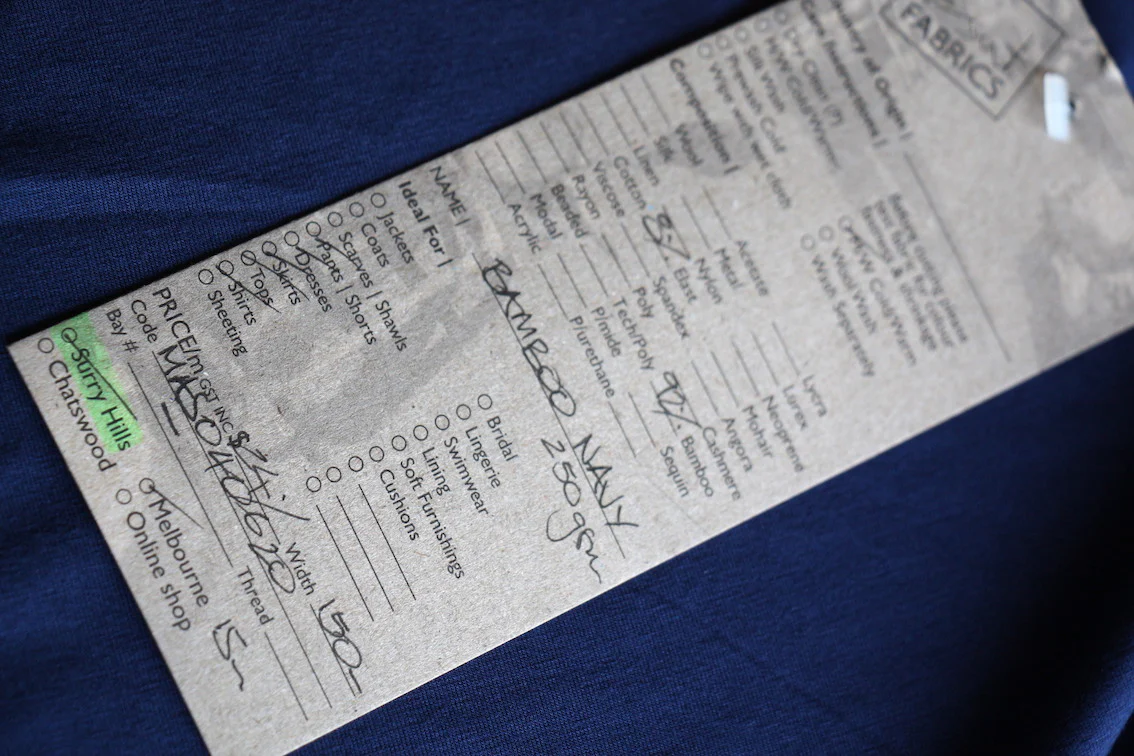 FABRICS
Country of Origin |
Care Instructions |
Dry Clean (P)
H/W Cold/Warm
Silk Wash
Prewash Cold
Wipe with wet cloth
Before cutting please
M/W Cold/Warm
Wool Wash
Wash Separately
Composition |
Wool
Silk
Linen
Cotton
Viscose
Rayon
Beaded
Modal
Acrylic
Acetate
Metal
Nylon
8% Elast
Spandex
Poly
Tech/Poly
P/mide
P/urethane
Lycra
Lurex
Neoprene
Mohair
Angora
Cashmere
Bamboo
Sequin
NAME | BAMBOO NAVY
250gsm
Ideal For |
Jackets
Coats
Scarves | Shawls
Pants | Shorts
Dresses
Skirts
Tops
Shirts
Sheeting
Bridal
Lingerie
Swimwear
Lining
Soft Furnishings
Cushions
PRICE/m GST INC $24/ Width 150
Code MAB040620 Thread
Bay #
Surry Hills Melbourne 15m
Chatswood Online shop